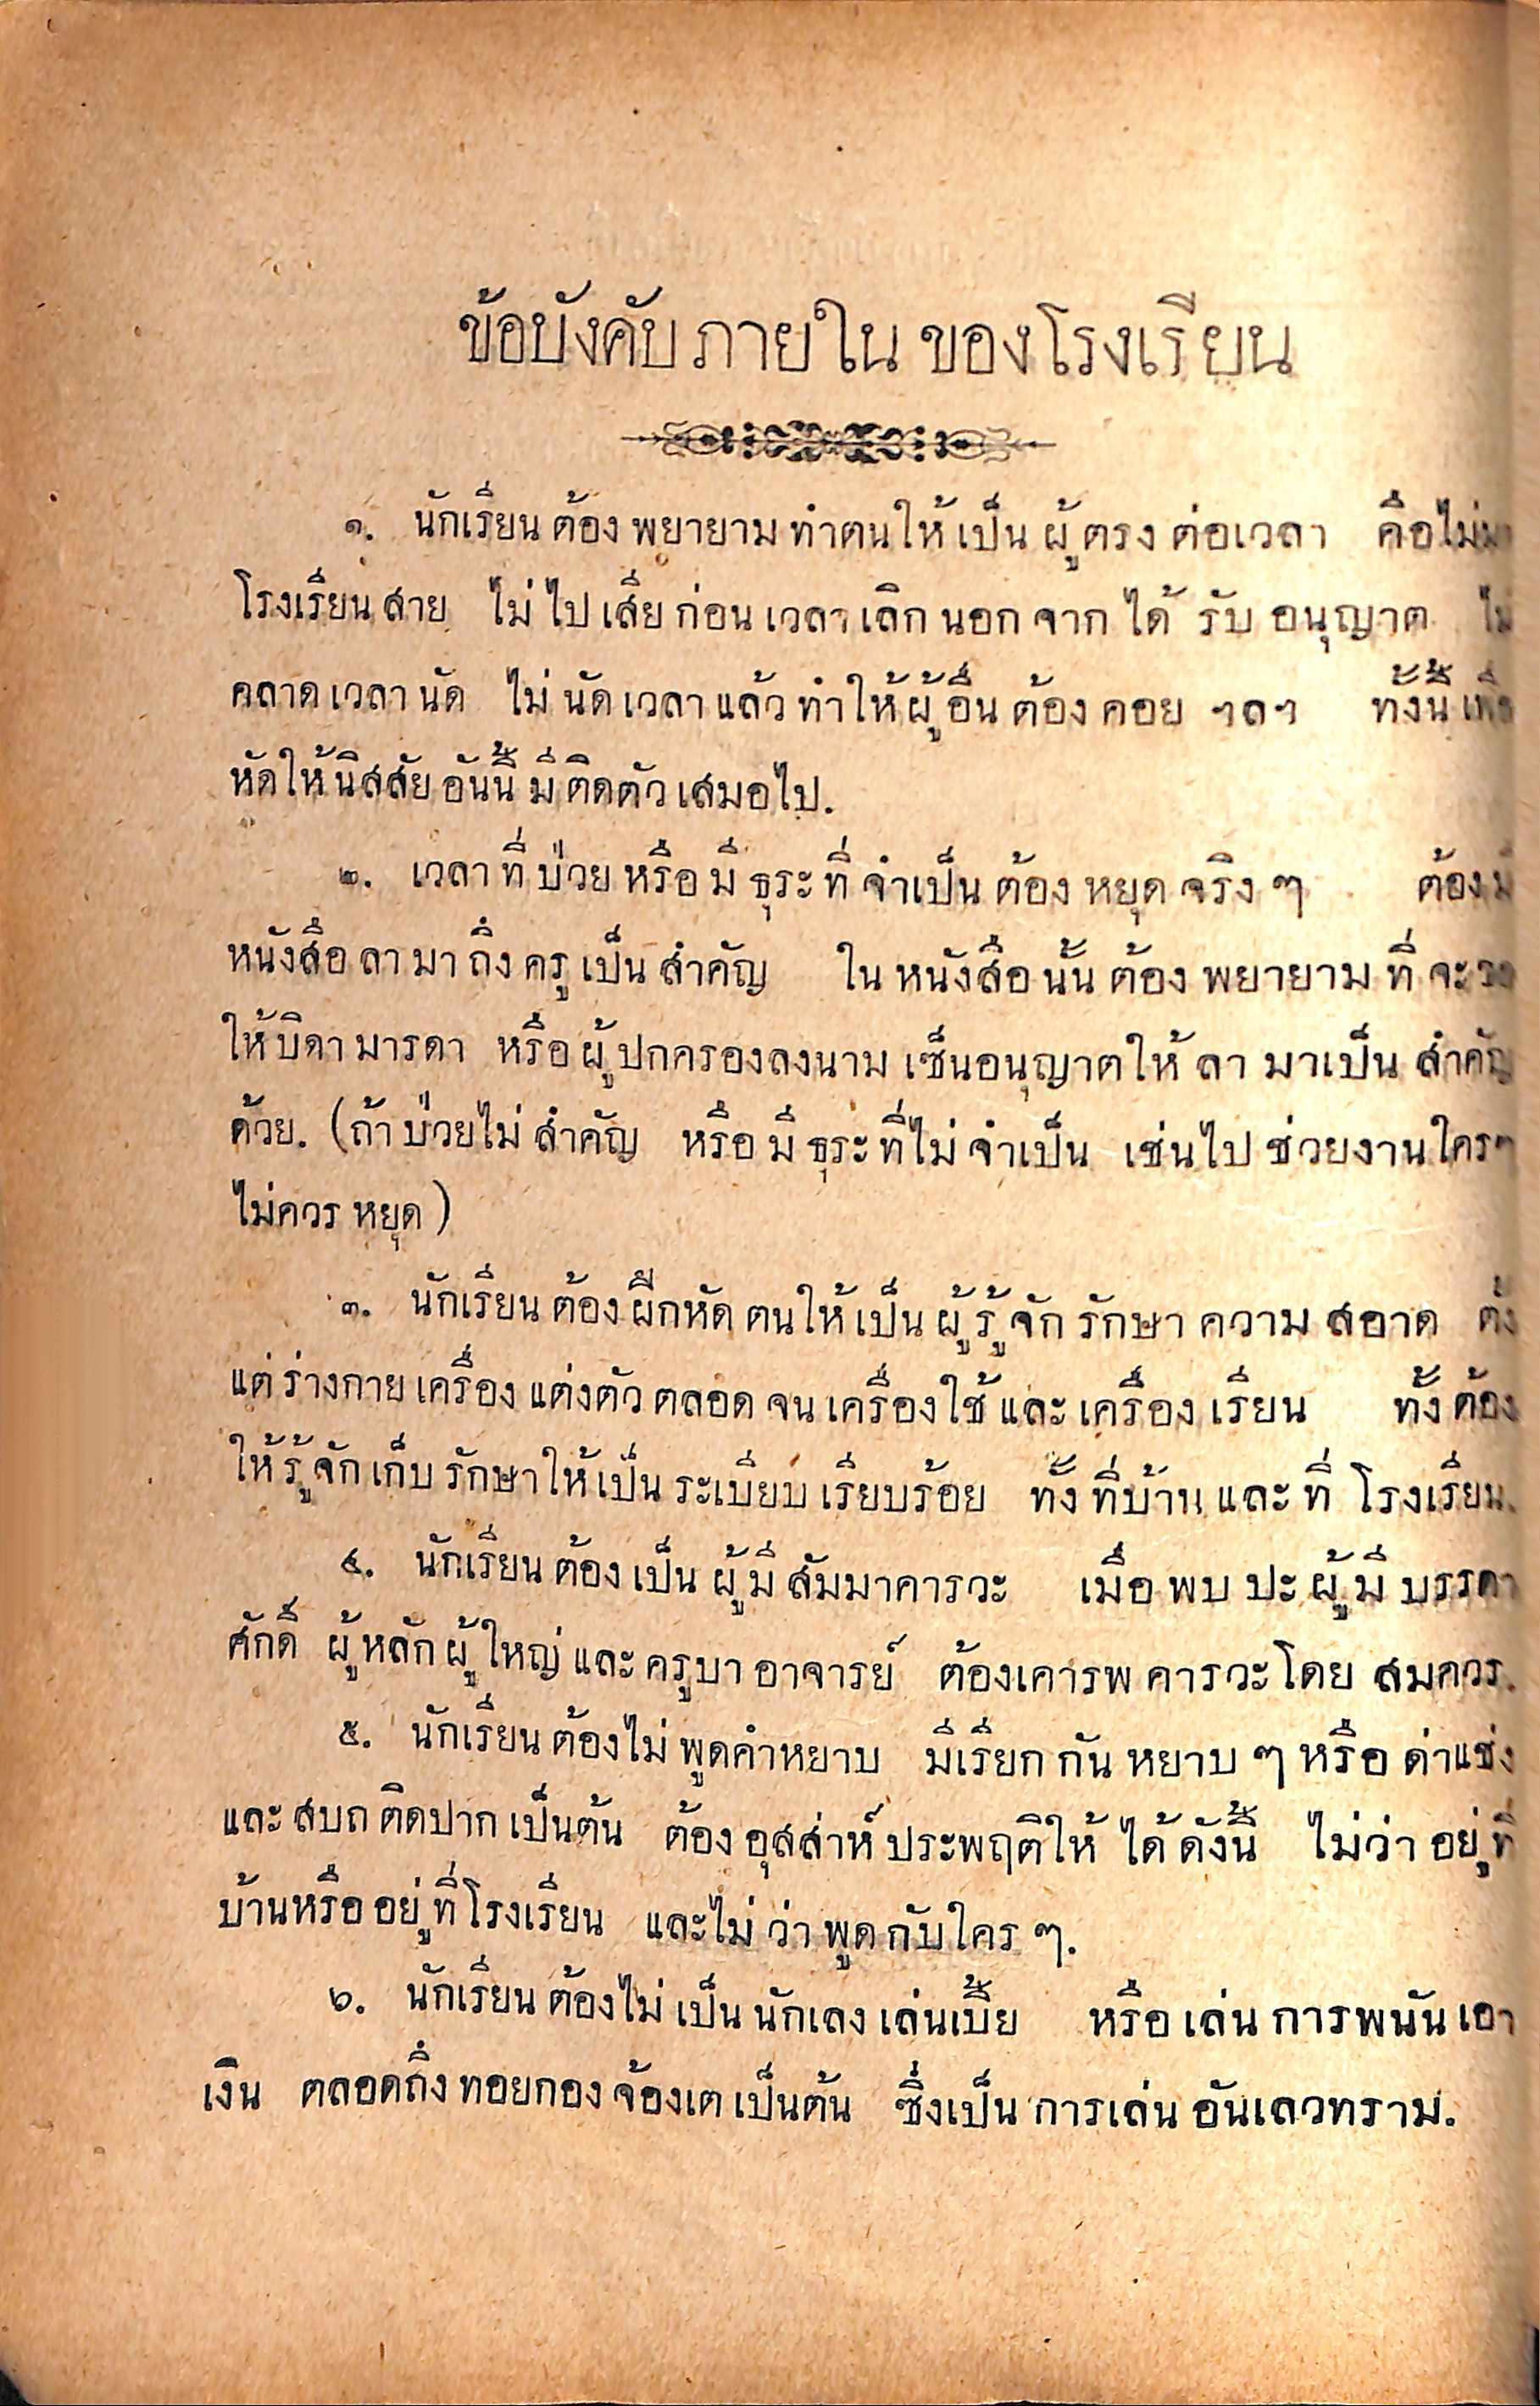 ข้อบังคับภายในของโรงเรียน
๑. นักเรียนต้องพยายามทำตนให้เป็นผู้ตรงต่อเวลา คือไม่มา
โรงเรียนสาย ไม่ไปเสียก่อนเวลาเลิกนอกจากได้รับอนุญาต ไม่
คลาดเวลานัด ไม่นัดเวลาแล้วทำให้ผู้อื่นต้องคอย ฯลฯ ทั้งนี้เพื่อ
หัดให้นิสสัยอันนี้มีติดตัวเสมอไป.
๒. เวลาที่ป่วยหรือมีธุระที่จำเป็นต้องหยุดจริง ๆ ต้องมี
หนังสือลามาถึงครูเป็นสำคัญ ในหนังสือนั้นต้องพยายามที่จะ
ให้บิดามารดา หรือผู้ปกครองลงนามเซ็นอนุญาตให้ลามาเป็นสำคัญ
ด้วย. (ถ้าป่วยไม่สำคัญ หรือมีธุระที่ไม่จำเป็น เช่นไปช่วยงานใครๆ
ไม่ควรหยุด)
๓. นักเรียนต้องฝึกหัดตนให้เป็นผู้รู้จักรักษาความสอาด ตั้ง
แต่ร่างกายเครื่องแต่งตัวตลอดจนเครื่องใช้และเครื่องเรียน ทั้งต้อง
ให้รู้จักเก็บรักษาให้เป็นระเบียบเรียบร้อย ทั้งที่บ้านและที่โรงเรียน.
๔. นักเรียนต้องเป็นผู้มีสัมมาคารวะ เมื่อพบปะผู้มีบรรดา
ศักดิ์ ผู้หลักผู้ใหญ่และครูบาอาจารย์ ต้องเคารพคารวะโดยสมควร.
๕. นักเรียนต้องไม่พูดคำหยาบ มีเรียกกันหยาบ ๆ หรือด่าแช่ง
และสบถติดปากเป็นต้น ต้องอุสส่าห์ประพฤติให้ได้ดังนี้ ไม่ว่าอยู่ที่
บ้านหรืออยู่ที่โรงเรียน และไม่ว่าพูดกับใคร ๆ.
๖. นักเรียนต้องไม่เป็นนักเลงเล่นเบี้ย หรือเล่นการพนันเอา
เงิน ตลอดถึงทอยกองจ้องเตเป็นต้น ซึ่งเป็นการเล่นอันเลวทราม.